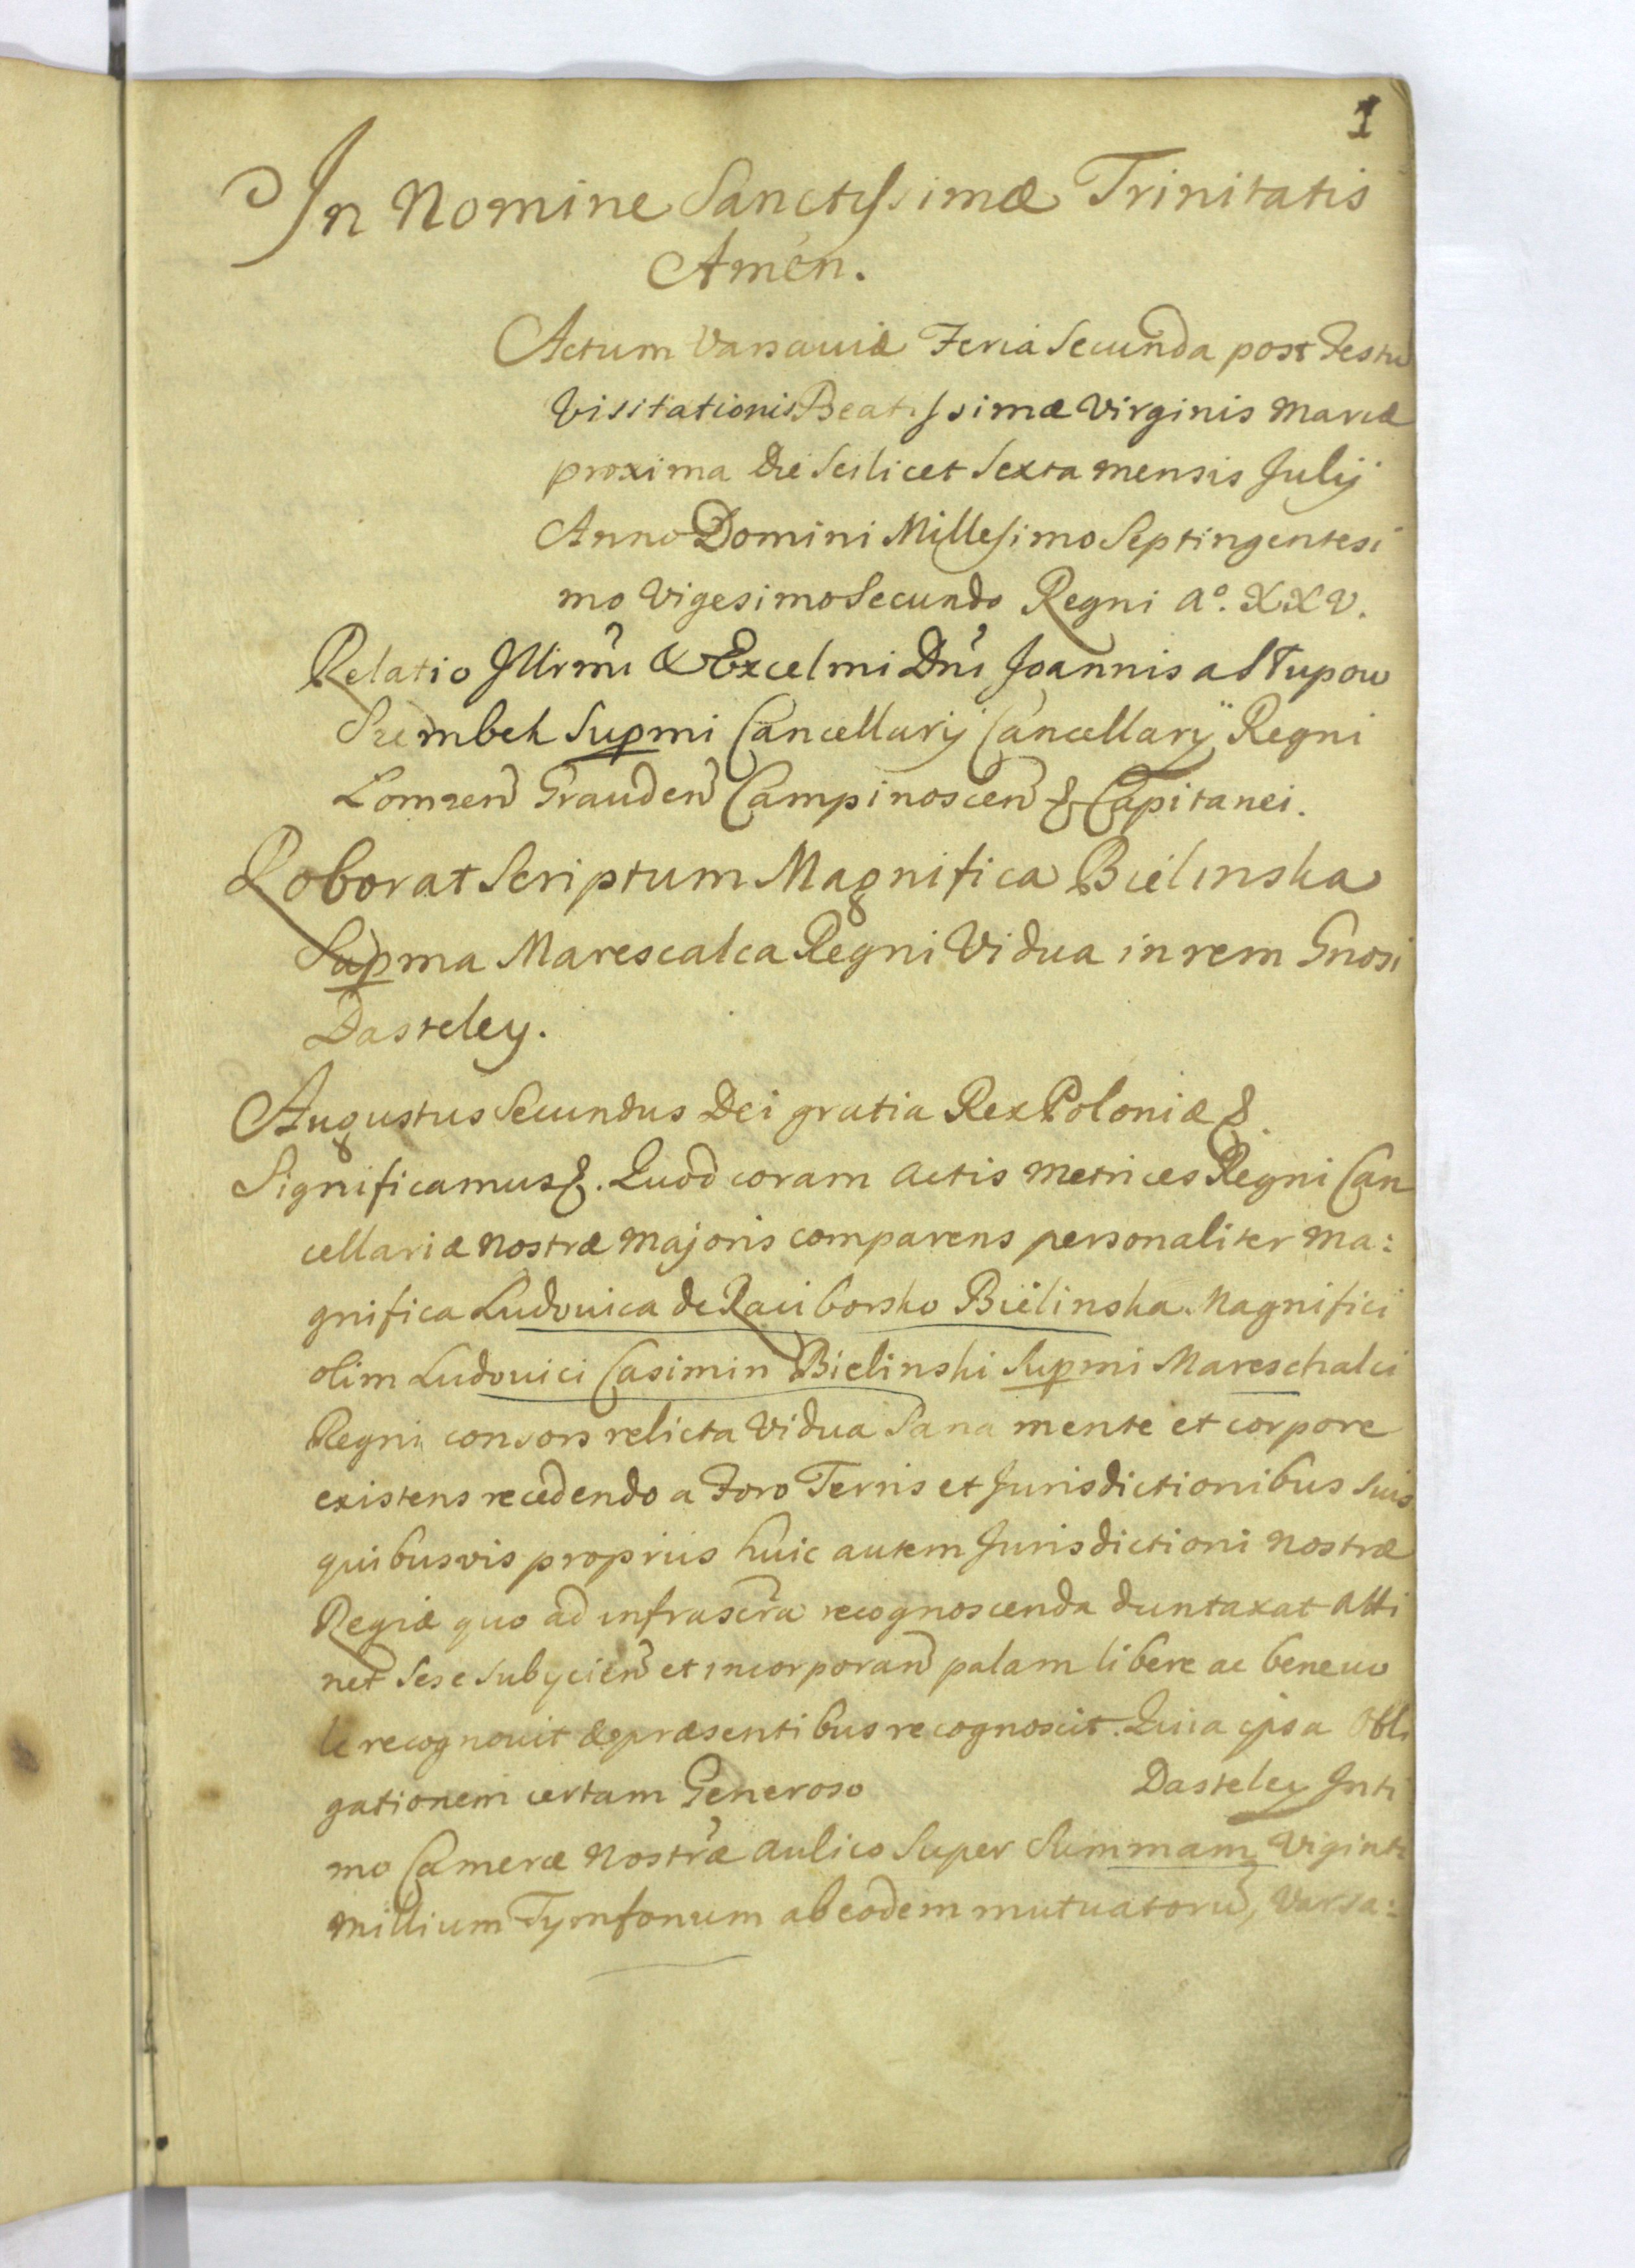 1
In Nomine Sanctissimæ Trinitatis
Amen.
Actum Varsauiæ Feria Secunda post Festu
Visitationis Beatissimæ Virginis Mariæ
proxima die Scilicet Sexta mensis Julij
Anno Domini Millesimo Septingentesi
mo Vigesimo Secundo Regni Aº. XXV.
Relatio Illrmi & Excelmi Dni Joannis a Stupow
Szembek Supmi Cancellarij Cancellarij Regni
Lomzen Grauden Campinoscen & Capitanei.
Roborat Scriptum Magnifica Bielinska
Supma Marescalca Regni Vidua in rem Gnosi
Dasteley.
Augustus Secundus Dei gratia Rex Poloniæ &.
Significamus &. Quod coram Actis Metrices Regni Can
cellariæ nostræ Majoris comparens personaliter Ma:
gnifica Ludouica de Raciborsko Bielinska Magnifici
olim Ludouici Casimiri Bielinski Supmi Mareschalci
Regni consors relicta Vidua Sana mente et corpore
existens recedendo a Foro Terris et Jurisdictionibus Suis
quibusvis proprijs huic autem Jurisdictioni Nostræ
Regiæ quo ad infrascra recognoscenda duntaxat atti
net Sese Subycien et incorporan palam libere ac beneuo
le recognouit & præsentibus recognoscit. Quia ipsa Obli
gationem certam Generoso Dasteley Inti
mo Cameræ Nostræ Aulico Super Summam Viginti
Millium Tymfonum ab eodem mutuatoru, Varsa: